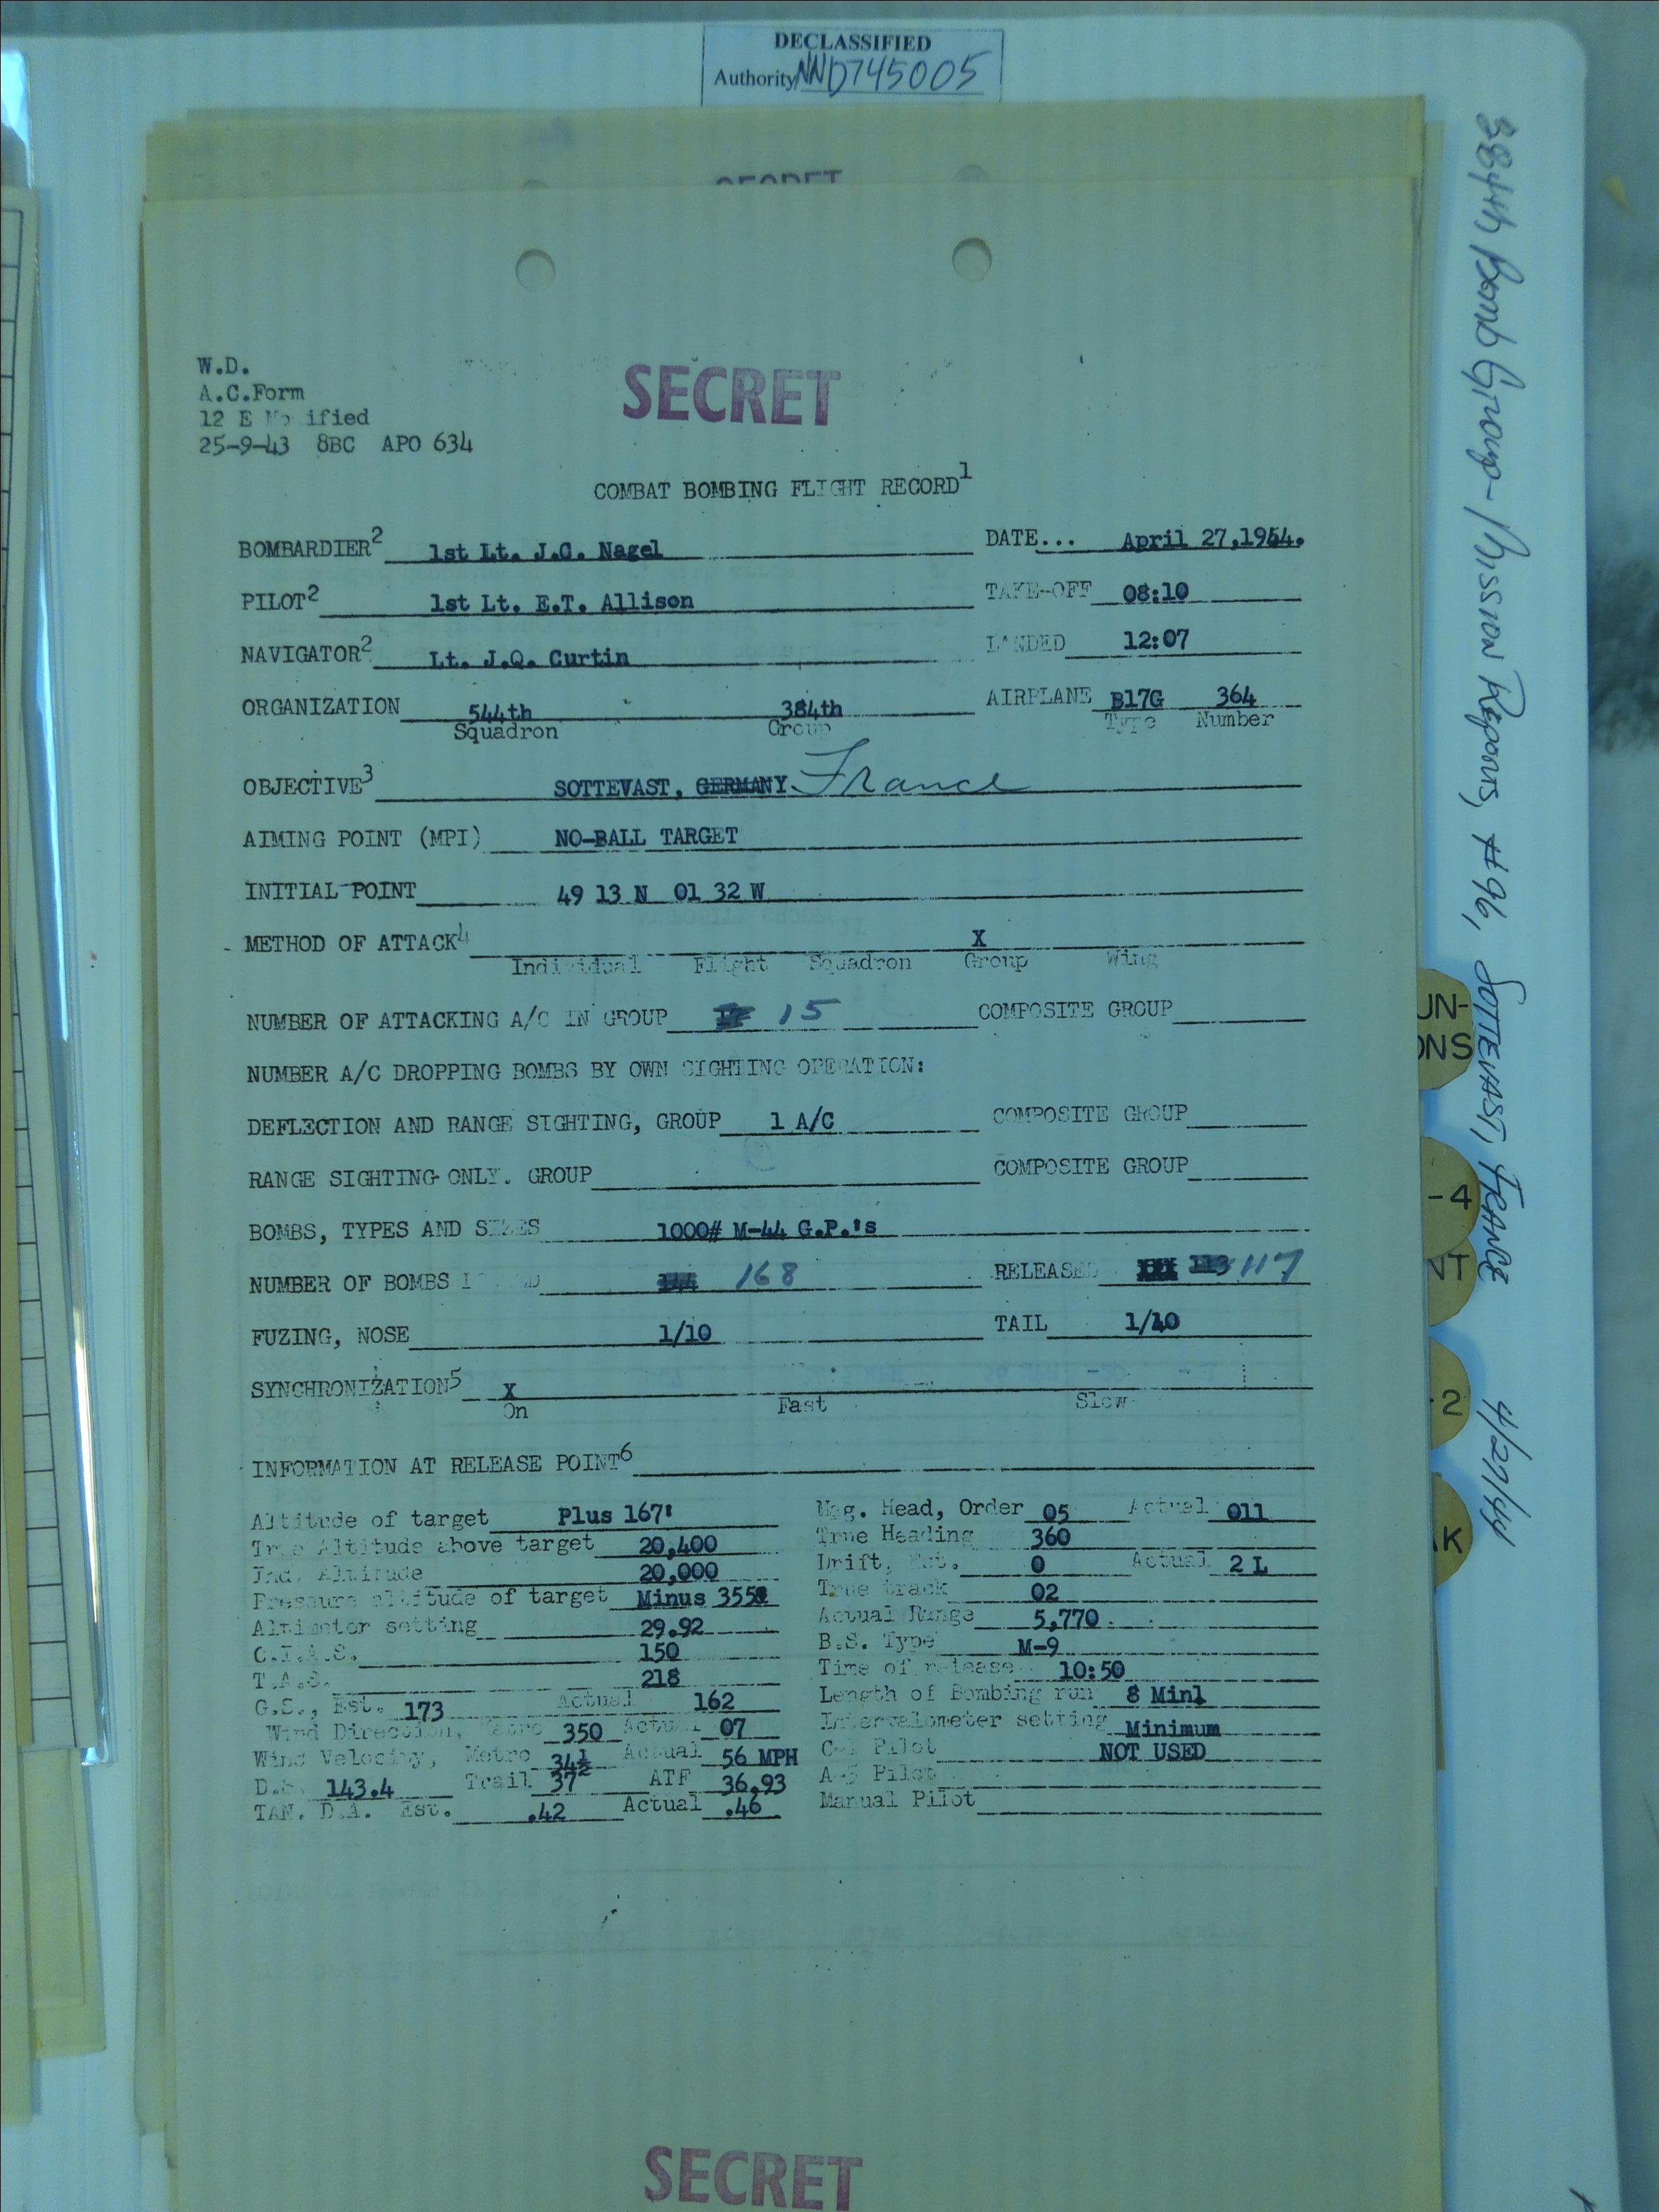 DECLASSIFIED
Authority NND745005
SECRET
W.D.
A.C.Form
12 E Modified
25-9-43 8BC APO 634
SECRET
COMBAT BOMBING FLIGHT RECORD1
BOMBARDIER2 1st Lt. J.C. Nagel DATE... April 27,1944.
PILOT2 1st Lt. E.T. Allison TAKE-OFF 08:10
NAVIGATOR2 Lt. J.Q. Curtin LANDED 12:07
ORGANIZATION 544th 384th AIRPLANE B17G 364
Squadron Group Type Number
OBJECTIVE3 SOTTEVAST, GERMANY. France
AIMING POINT (MPI) NO-BALL TARGET
INITIAL POINT 49 13 N 01 32 W
METHOD OF ATTACK4 X
Individual Flight Squadron Group Wing
NUMBER OF ATTACKING A/C IN GROUP 15 COMPOSITE GROUP
NUMBER A/C DROPPING BOMBS BY OWN SIGHTING OPERATION:
DEFLECTION AND RANGE SIGHTING, GROUP 1 A/C COMPOSITE GROUP
RANGE SIGHTING ONLY. GROUP COMPOSITE GROUP
BOMBS, TYPES AND SIZES 1000# M-44 G.P.'s
NUMBER OF BOMBS 168 RELEASED 113 117
FUZING, NOSE 1/10 TAIL 1/10
SYNCHRONIZATION5 X
On Fast Slow
INFORMATION AT RELEASE POINT6
Altitude of target Plus 167' Mag. Head, Order 05 Actual 011
True Altitude above target 20,400 True Heading 360
Ind. Altitude 20,000 Drift, Est. 0 Actual 2 L
Pressure altitude of target Minus 355 True track 02
Altimeter setting 29.92 Actual Range 5,770
C.I.A.S. 150 B.S. Type M-9
T.A.S. 218 Time of release 10:50
G.S., Est. 173 Actual 162 Length of Bombing run 8 Minl
Wind Direction, Metro 350 Actual 07 Intervalometer setting Minimum
Wind Velocity, Metro 34½ Actual 56 MPH C-1 Pilot NOT USED
D.S. 143.4 Trail 37 ATF 36.93 A-5 Pilot
TAN. D.A. Est. .42 Actual .46 Manual Pilot
SECRET
384th Bomb Group - Mission Reports, #96, SOTTEVAST, FRANCE 4/27/44
UN-
ONS
-4
NT
-2
K